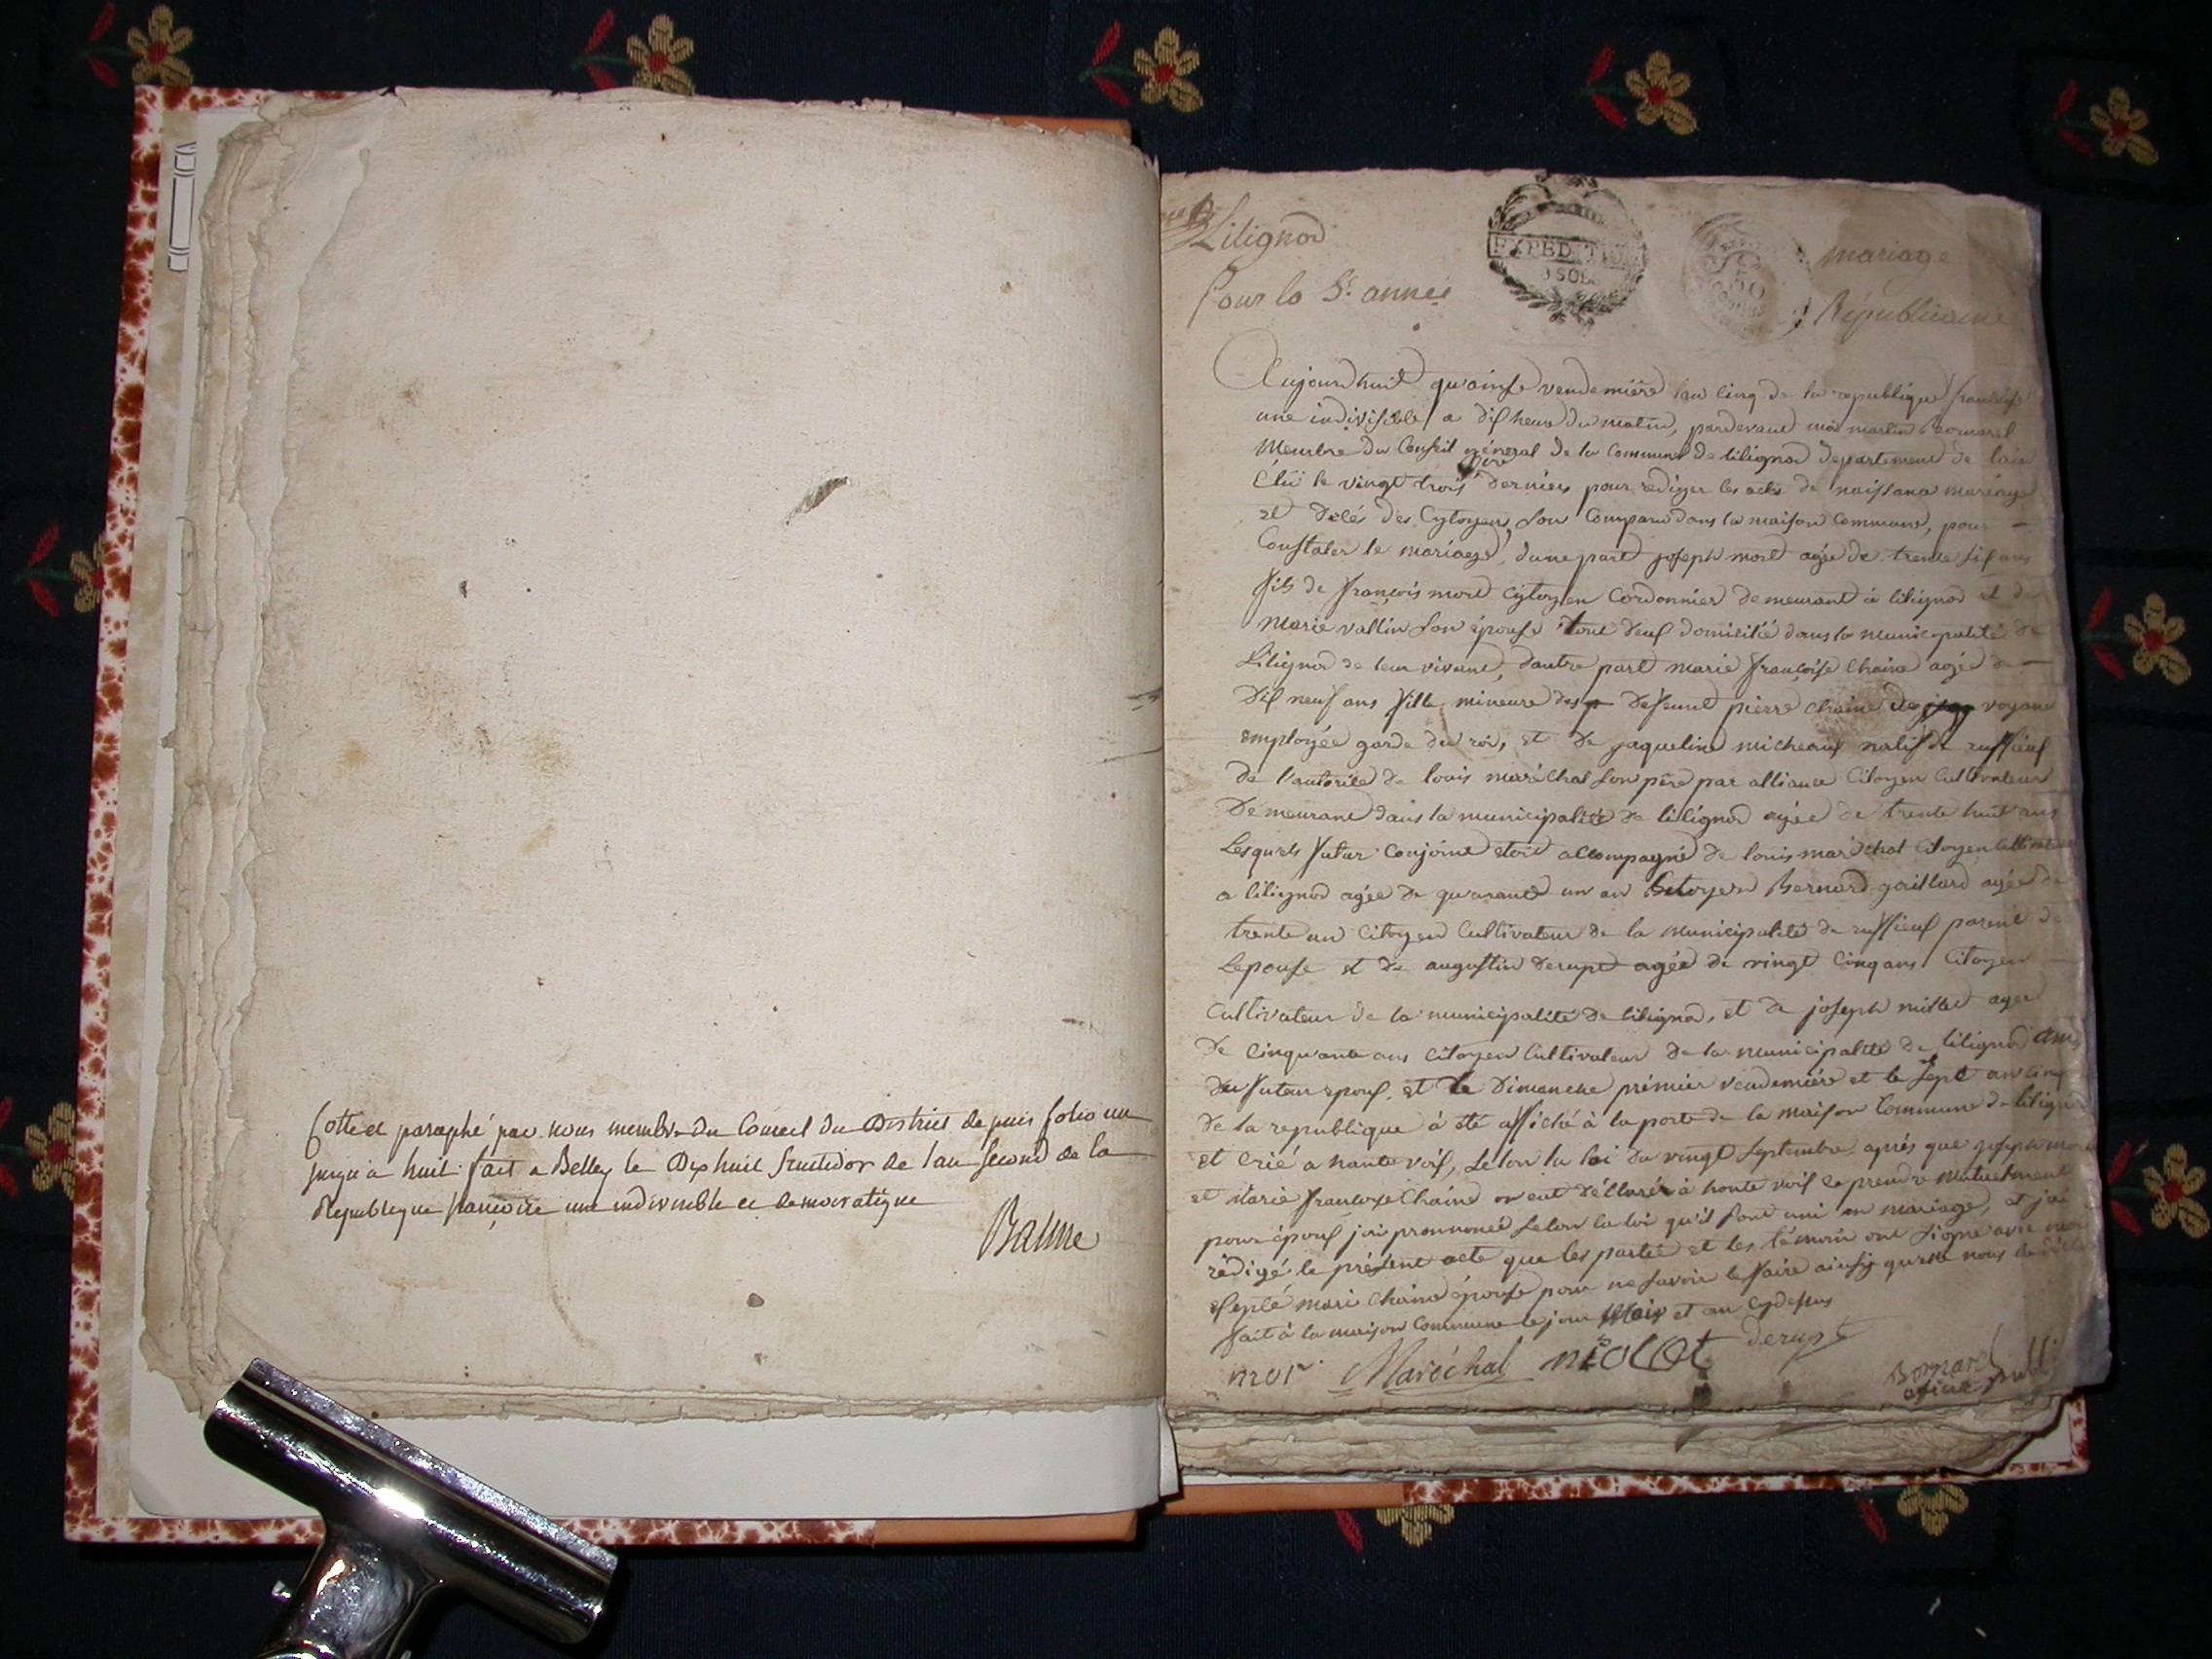 Cotte et paraphé par nous membre du Conseil du District depuis folio un
jusqu'a huit fait a Belley le Dix huit fructidor de l'an second de la
Republique françoise une indivisible et democratique
Balme
Lilignod
mariage
EXPEDITION
SOLS
Pour la 5e année
Républicaine
Aujourdhuit quainse vendemière lan cinq de la republique francaise
une indivisible a dis heure du matin, pardevant moi martin Bornarel
Membre du Conseil général de la Commune de lilignod departement de lain
élu le vingt trois dernier pour rediger les acte de naissana mariage
et décés des Cytoyens, son Comparu dans la maison Commune, pour
Constater le mariage, dune part joseph mort agée de trente sis ans
fils de françois mort Cytoyen Cordonnier demeurant à lilignod et de
Marie vallin son épouse tout deus domicilié dans la municipalité de
Lilignod de leur vivant, dautre part marie françoise Chaine agée de
dis neuf ans fille mineure des defeunt pierre chaine voyant
employée garde du roi, et de jaqueline micheaus natif de ruffieus
de l'autorité de louis maréchal son père par alliance Citoyen Cultivateur
Demeurant dans la municipalité de lilignod agée de trente huit ans
Lesquels futur Conjoint etoit accompagné de louis maréchal Citoyen Cultivateur
a lilignod agée de quarante un an Citoyen Bernard gaillard agée de
trente an Citoyen Cultivateur de la municipalité de ruffieus parent de
Lepouse et de augustin derupt agée de vingt Cinq ans Citoyen
Cultivateur de la municipalité de lilignod, et de joseph agée
de Cinquante ans Citoyen Cultivateur de la municipalité de lilignod ami
du futeur epous. et le Dimanche prémier vendemière et le sept an Cinq
de la republique à été affiché à la porte de la maison Commune de lilignod
et Crié a haute vois, selon la loi du vingt septembre, aprés que joseph mort
et Marie françoise Chaine on eut décllarér à haute vois se prendre mutuelment
pour épous jai prononcé selon la loi qu'il sont uni en mariage, et jai
rédigé le présent acte que les partie et les témoin ont signé avec moi
Septé mari Chaine épouse pour ne savoir le faire ainsy quelle nous
fait à la maison Commune le jour Mois et an Cydessus
mort Maréchal derupt
Bornarel
oficié publi